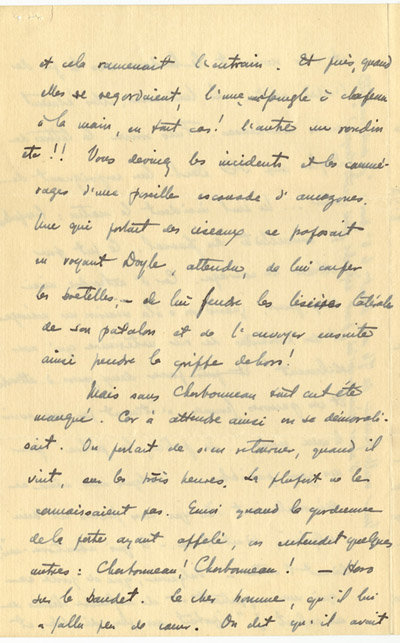 et cela ramenait l'entrain. Et puis, quand
elles se regardaient, l'une épingle à chapeau
à la main, en tout cas! l'autre un rondin
etc!! Vous devinez les incidents et les commé-
rages d'une pareille escouade d'amazones.
Une qui portait des ciseaux se proposait
en voyant Doyle, attendu, de lui couper
les bretelles, — de lui fendre les lisières latérales
de son patalon et de l'envoyer ensuite
ainsi pendre la griffe dehors!
Mais sans Charbonneau tout eut été
manqué. Car à attendre ainsi on se démorali-
sait. On parlait de s'en retourner, quand il
vint, sur les trois heures. La plupart ne le
connaissaient pas. Aussi quand la gardienne
de la porte ayant appelé, on entendit quelques
autres: Charbonneau! Charbonneau! —
sur le Baudet. Le cher homme, qu'il lui
a fallu peu de cœur. On dit qu'il avait